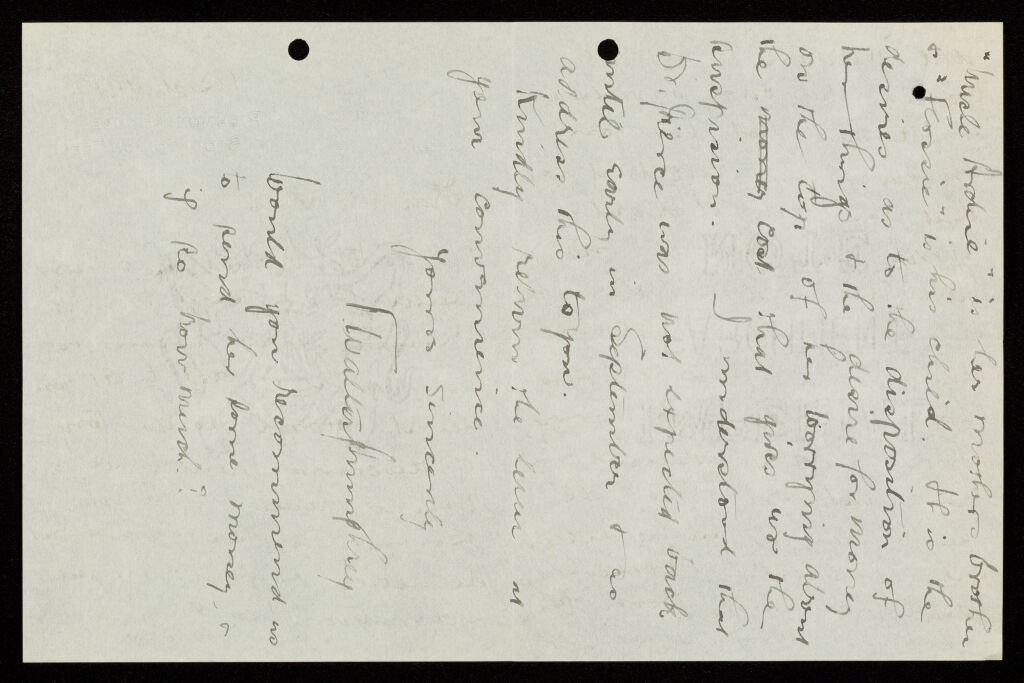 "Uncle Archie" is her mother's brother
& "Flossie" is his child. It is the
desires as to the disposition of
her things & the desire for money
on the top of her worrying about
the money cost that gives us the
suspicion. I understand that
Dr. Pierce was not expected back
until early in September & so
address this to you.
Kindly return the letter at
your convenience.
Yours sincerely
J. Walter Humphrey
Would you recommend us
to send her some money, &
if so how much?